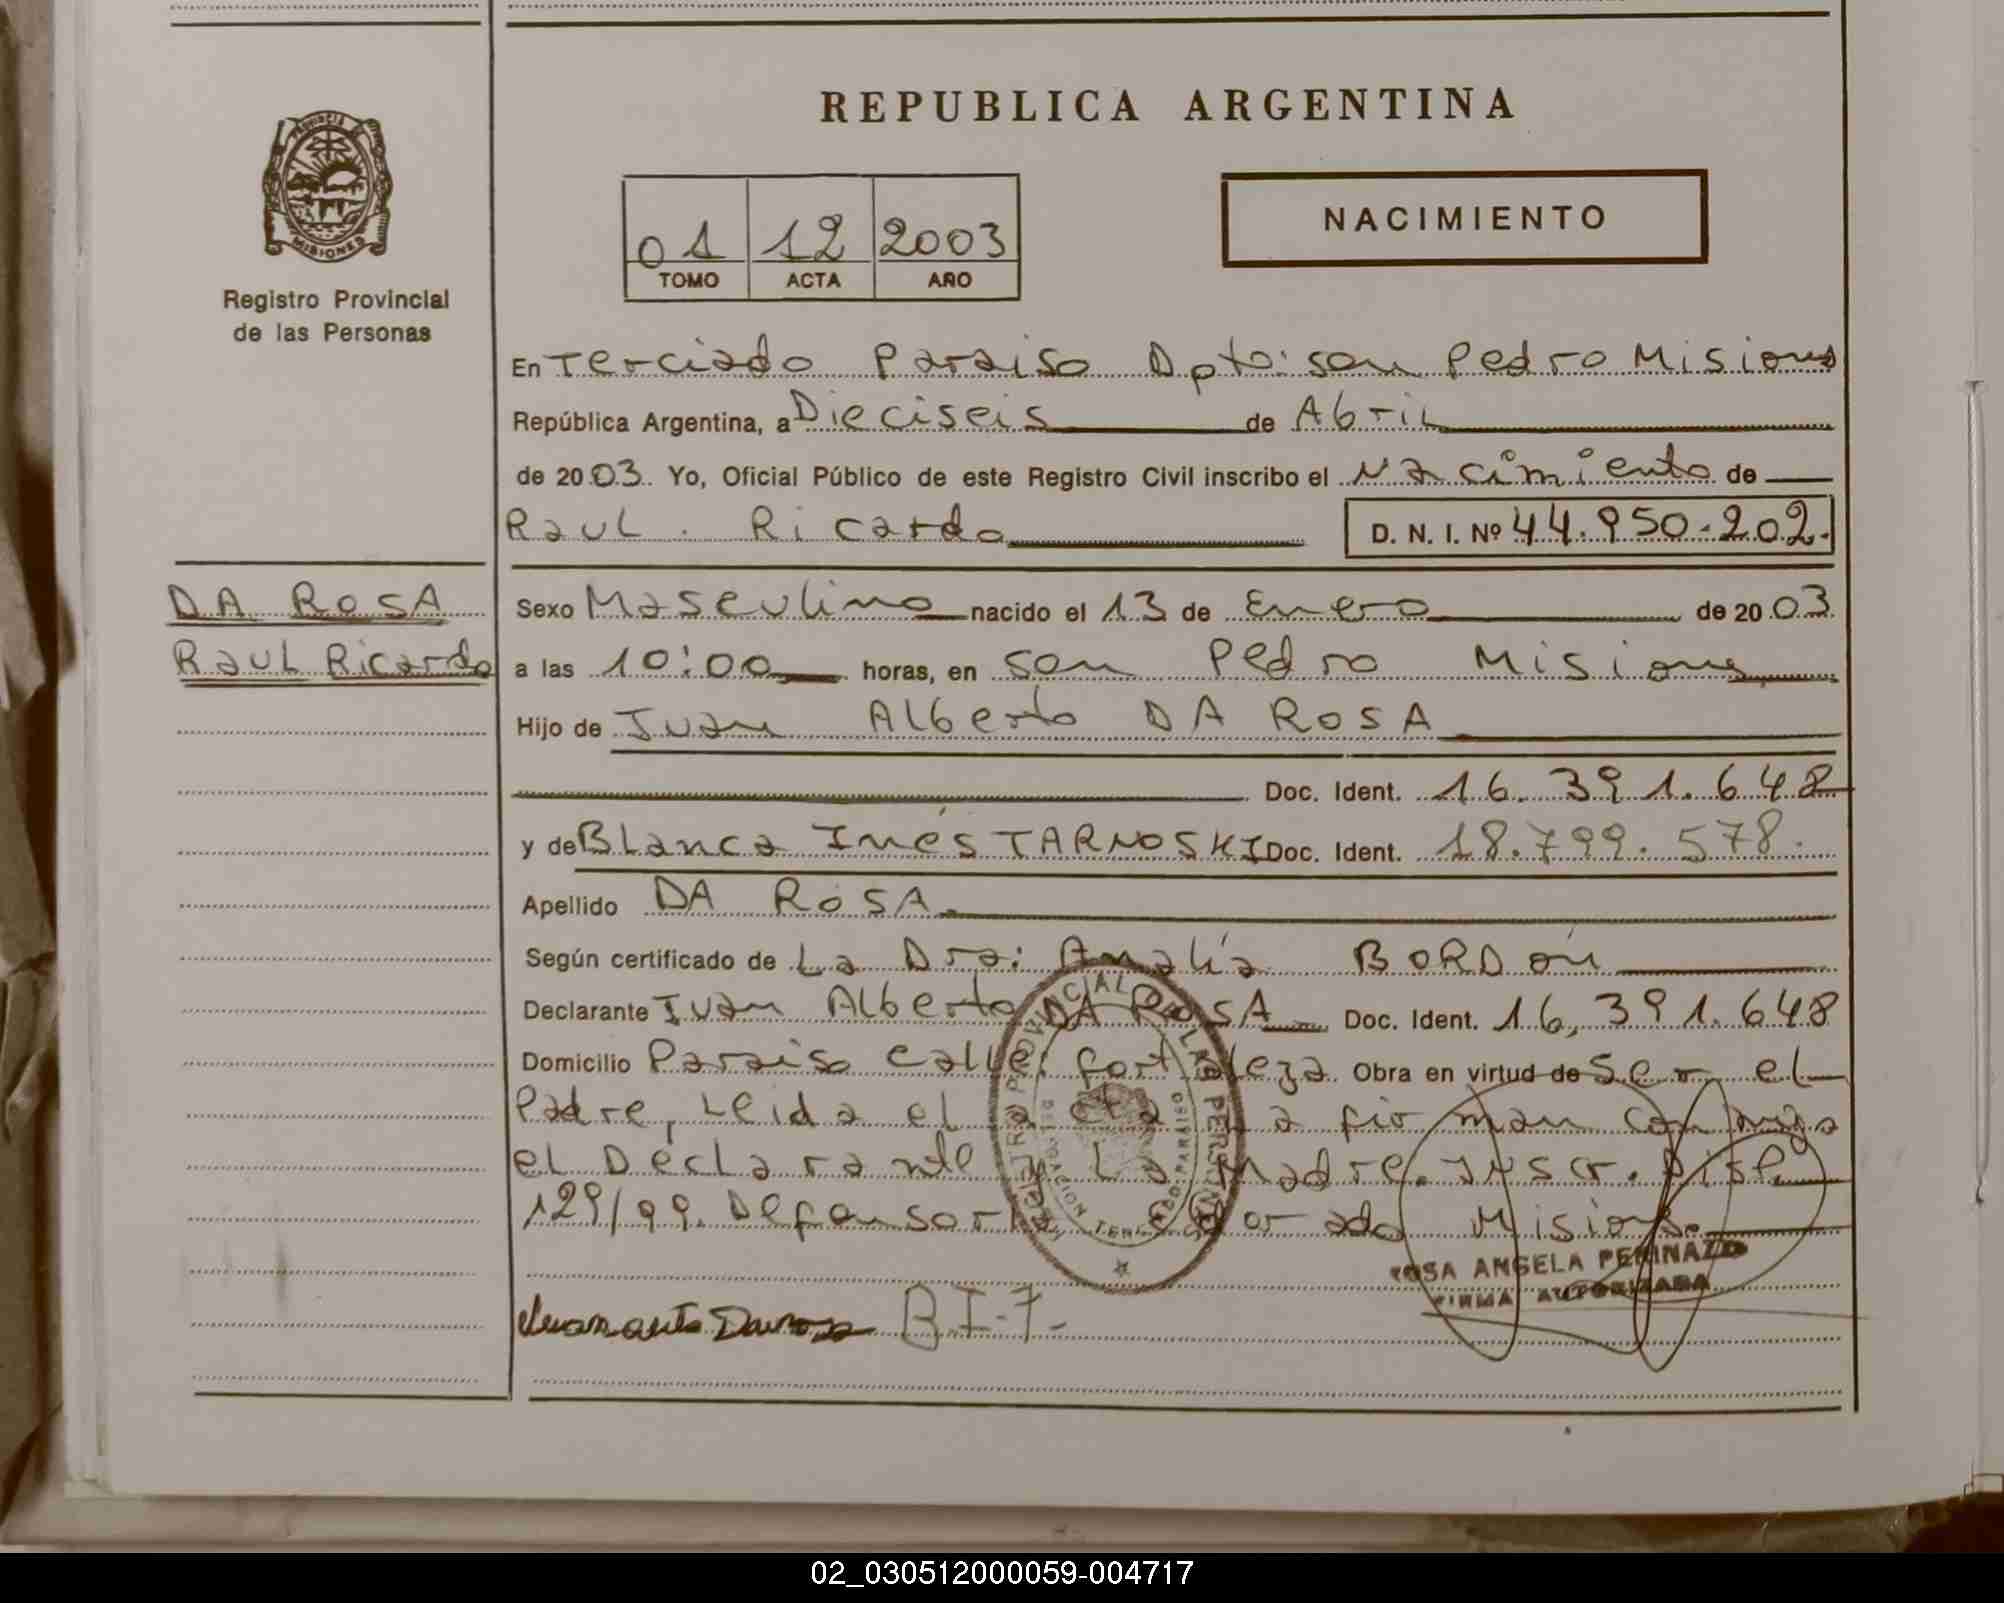 REPUBLICA ARGENTINA
PROVINCIA DE
MISIONES
Registro Provincial
de las Personas
01 12 2003
TOMO ACTA AÑO
NACIMIENTO
En Terciado Paraiso Dpto: San Pedro Misiones
República Argentina, a Dieciseis de Abril
de 2003. Yo, Oficial Público de este Registro Civil inscribo el Nacimiento de
Raul Ricardo D. N. I. Nº 44.950.202.
DA ROSA
Raul Ricardo
Sexo Masculino nacido el 13 de Enero de 2003
a las 10:00 horas, en San Pedro Misiones
Hijo de Juan Alberto DA ROSA
Doc. Ident. 16.391.648
y de Blanca Inés TARNOSKI Doc. Ident. 18.799.578.
Apellido DA ROSA
Según certificado de La Dra: Analía BORDón
Declarante Juan Alberto DA ROSA Doc. Ident. 16.391.648
Domicilio Paraiso Calle: fortaleza Obra en virtud de Ser el
Padre, Leida el acta La firman conmigo
el Declarante y La Madre. Inscr. Disp.
129/99. Defensoria Eldorado Misiones
ROSA ANGELA PERINAZZO
FIRMA AUTORIZADA
B I-7.-
02_030512000059-004717